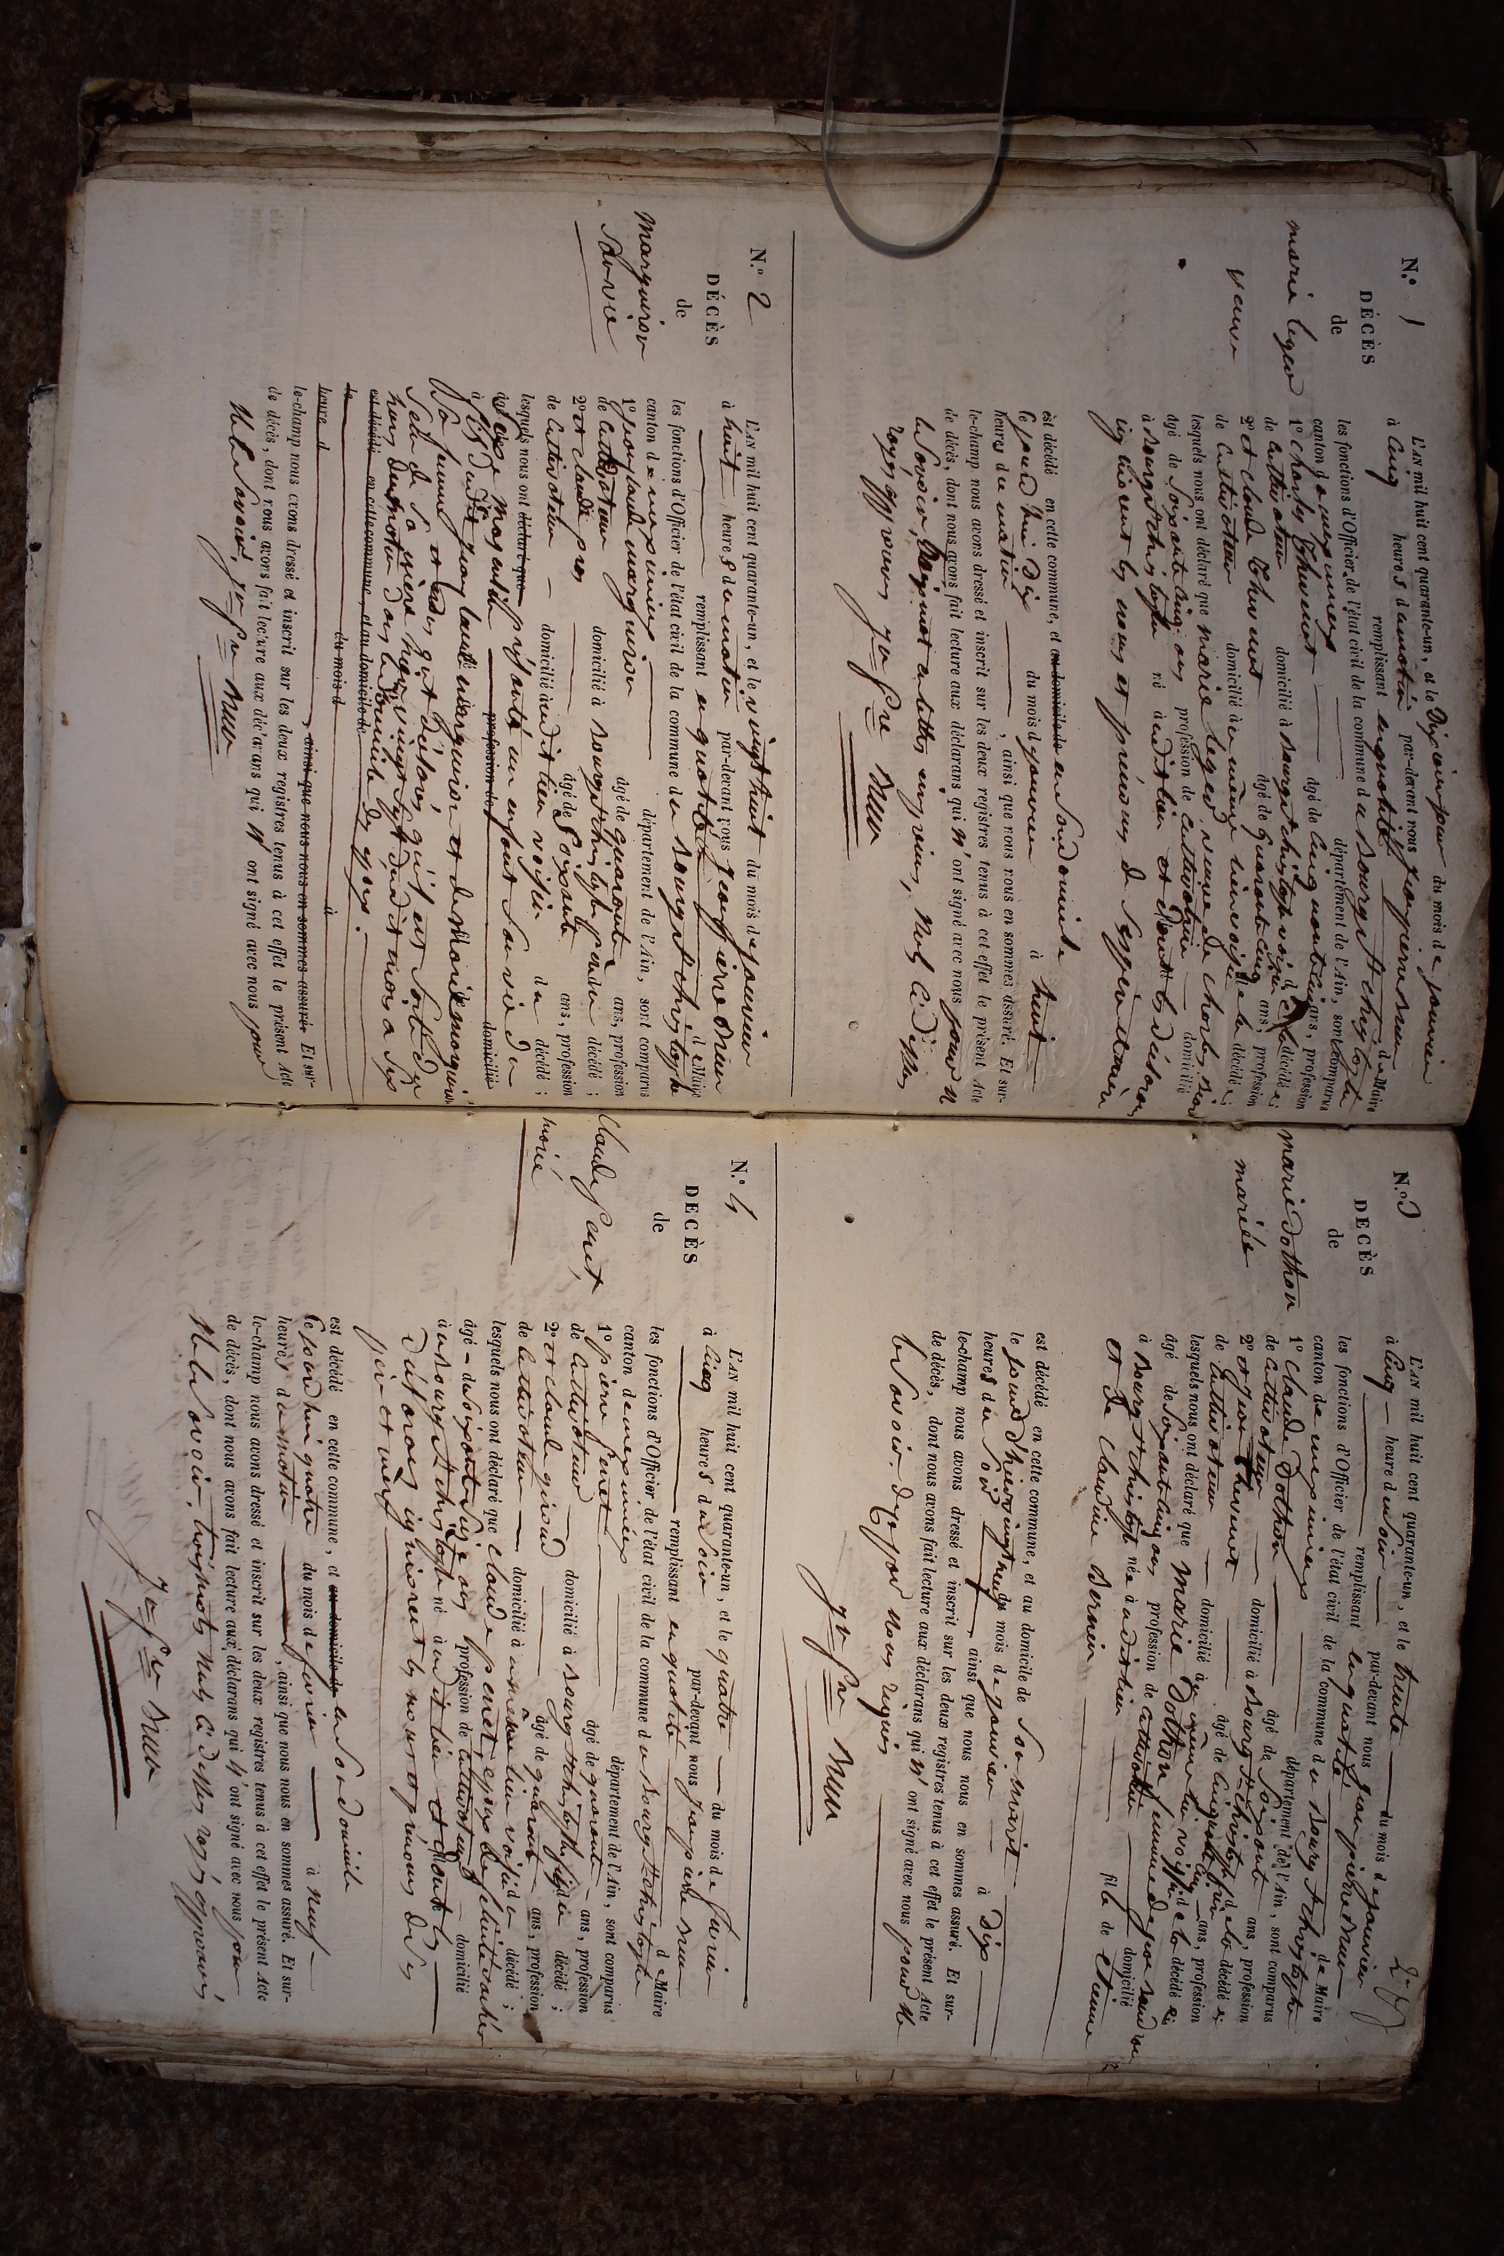 N.º 1
DÉCÈS
de
marie leger
veuve
L'AN mil huit cent quarante-un, et le Dixième jour du mois de janvier
à cinq heures du matin par-devant nous jean pierre
remplissant en qualité de Maire
les fonctions d'Officier de l'état civil de la commune du Bourg St christophe
canton de meximieux département de l'Ain, sont comparus
1º Charles Thevenet âgé de cinquante cinq ans, profession
de cultivateur domicilié à Bourg St christophe voisin de la décédée;
2º et claude Thevenet âgé de quarante cinq ans, profession
de cultivateur domicilié à u même lieu voisin de la décédée;
lesquels nous ont déclaré que marie leger, veuve de Charles
âgé de soixante cinq ans profession de cultivatrice domicilié
à Bourg St christophe né à udit lieu et dont les déclarans
ignorent les noms et prénoms de
est décédé en cette commune, et au domicile de en son domicile
le jourd'hui dix du mois de janvier à huit
heures du matin, ainsi que nous nous en sommes assuré. Et sur-
le-champ nous avons dressé et inscrit sur les deux registres tenus à cet effet le présent Acte
de décès, dont nous avons fait lecture aux déclarans qui n'ont signé avec nous pour ne
le savoir, Dix mots nuls ci dessus
rayés approuvés
N.º 2
DÉCÈS
de
marguiron
L'AN mil huit cent quarante-un, et le vingt huit du mois de janvier
à huit heures du matin par-devant nous jean pierre
remplissant en qualité de Maire
les fonctions d'Officier de l'état civil de la commune du Bourg St christophe
canton de meximieux département de l'Ain, sont comparus
1º jean claude marguiron âgé de quarante ans, profession
de cultivateur domicilié à Bourg St christophe père du décédé;
2º et claude âgé de soixante ans, profession
de cultivateur domicilié à udit lieu voisin du décédé;
lesquels nous ont déclaré que présenté un enfant sans vie du
sexe masculin profession de domicilié
à fils dudit jean claude marguiron et de marie
sa femme et
sein de sa mère hier vingt sept dudit mois à six
heures du matin dans le domicile des époux.
est décédé en cette commune, et au domicile de
le du mois d à
heure d, ainsi que nous nous en sommes assuré. Et sur-
le-champ nous avons dressé et inscrit sur les deux registres tenus à cet effet le présent Acte
de décès, dont nous avons fait lecture aux déclarans qui n'ont signé avec nous pour
ne le savoir
N.º 3
DÉCÈS
de
marie dothon
mariée
L'AN mil huit cent quarante-un, et le trente du mois de janvier
à cinq heures du soir par-devant nous jean pierre
remplissant en qualité de Maire
les fonctions d'Officier de l'état civil de la commune du Bourg St christophe
canton de meximieux département de l'Ain, sont comparus
1º claude Dothon âgé de soixante ans, profession
de cultivateur domicilié à Bourg St christophe de la décédée;
2º et jean Thevenet âgé de cinquante cinq ans, profession
de cultivateur domicilié à u même lieu voisin de la décédée;
lesquels nous ont déclaré que Marie Dothon femme de jean
âgé de soixante cinq ans profession de cultivatrice domicilié
à Bourg St christophe née à audit lieu fille de etienne
et de claudine
est décédé en cette commune, et au domicile de son marit
le jourd'hui vingt neuf du mois de janvier à dix
heures du soir, ainsi que nous nous en sommes assuré. Et sur-
le-champ nous avons dressé et inscrit sur les deux registres tenus à cet effet le présent Acte
de décès, dont nous avons fait lecture aux déclarans qui n'ont signé avec nous pour ne
le savoir de ce par nous requis
N.º 4
DÉCÈS
de
Claude peret,
marié
L'AN mil huit cent quarante-un, et le quatre du mois de fevrier
à cinq heures du soir par-devant nous jean pierre
remplissant en qualité de Maire
les fonctions d'Officier de l'état civil de la commune du Bourg St christophe
canton de meximieux département de l'Ain, sont comparus
1º pierre peret âgé de quarante ans, profession
de cultivateur domicilié à Bourg St christophe fils du décédé;
2º et claude giroud âgé de quarante ans, profession
de cultivateur domicilié à u même lieu voisin du décédé;
lesquels nous ont déclaré que claude peret, epoux de
âgé de soixante ans profession de cultivateur domicilié
à u Bourg St christophe né à udit lieu et dont les
déclarans ignorent les noms et prénoms des
père et mère
est décédé en cette commune, et au domicile de en son domicile
le jourd'hui quatre du mois de fevrier à neuf
heures du matin, ainsi que nous nous en sommes assuré. Et sur-
le-champ nous avons dressé et inscrit sur les deux registres tenus à cet effet le présent Acte
de décès, dont nous avons fait lecture aux déclarans qui n'ont signé avec nous pour
ne le savoir. trois mots nuls ci dessus rayés approuvés,